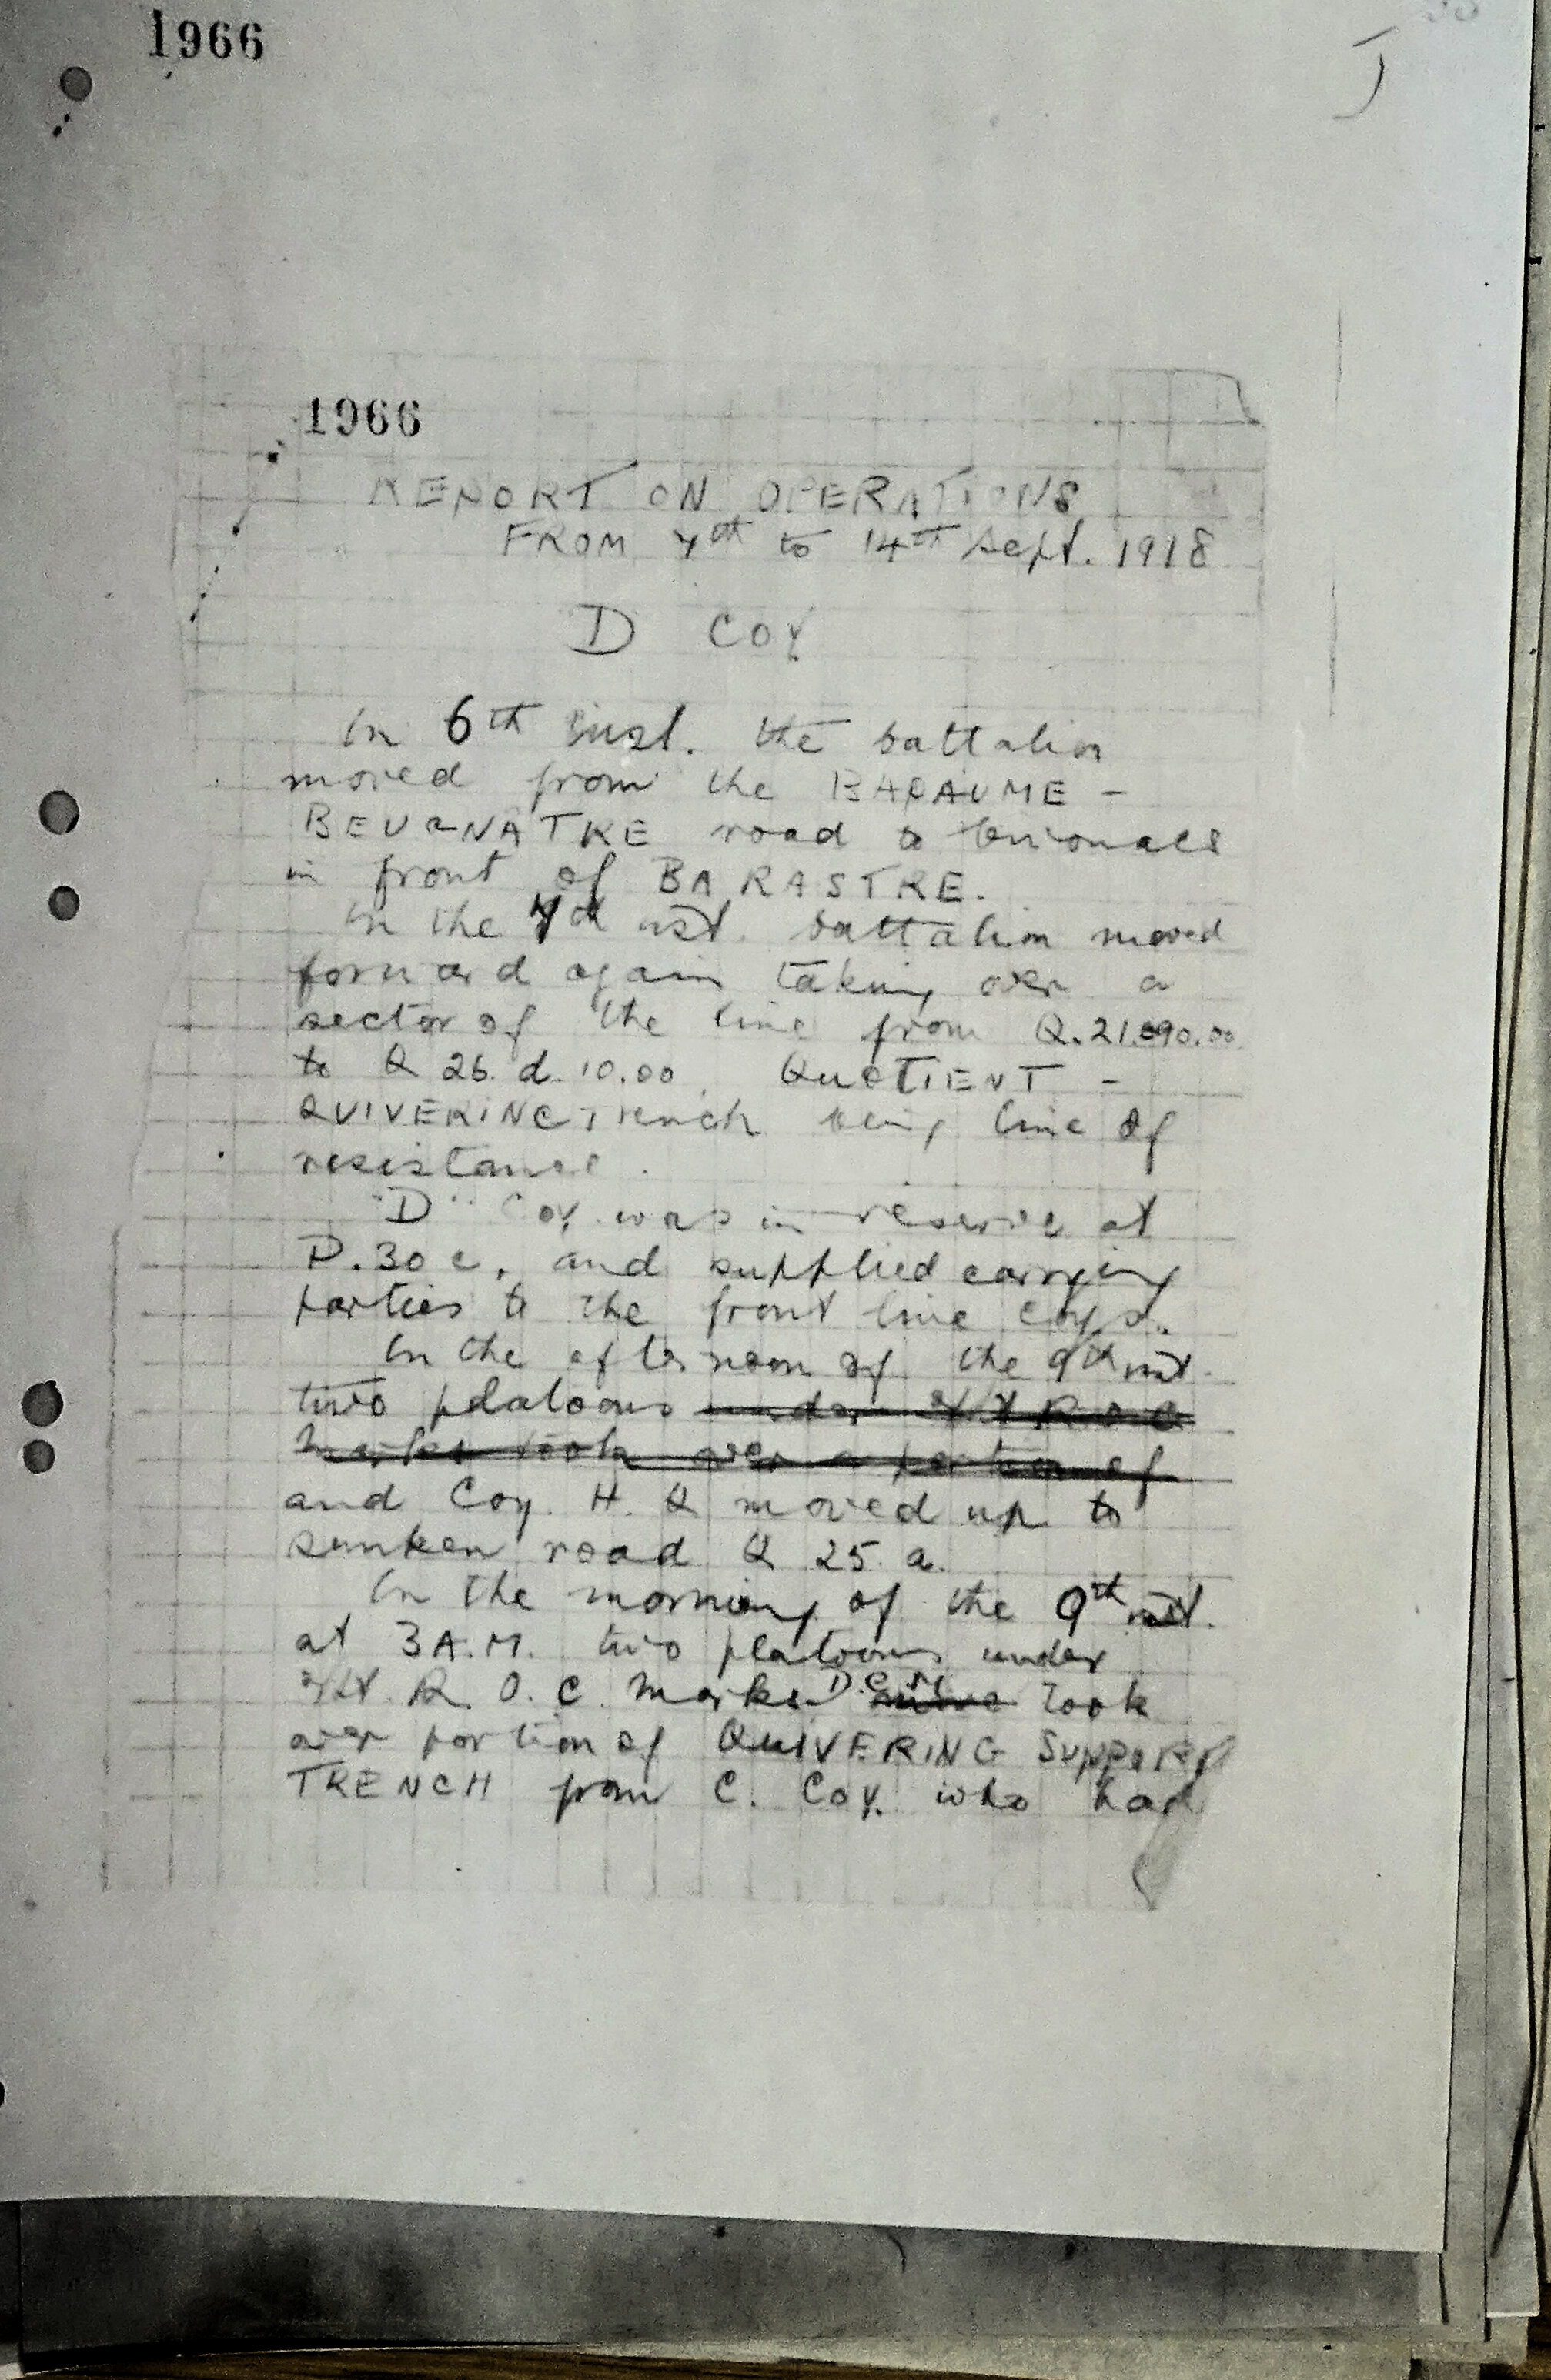 1966
1966
REPORT ON OPERATIONS
FROM 7th to 14TH Sept. 1918
D COY
On 6th inst. the battalion
moved from the BAPAUME -
BEUGNATRE road to bivouacs
in front of BARASTRE.
On the 7th inst. battalion moved
forward again taking over a
sector of the line from Q.21. 90.00
to Q 26. d. 10.00. QUOTIENT -
QUIVERING Trench being line of
resistance.
"D" Coy. was in reserve at
P.30 c, and supplied carrying
parties to the front line coys.
On the afternoon of the 9th inst.
two platoons under 2/Lt R O C
Marks took over a portion of
and Coy. H. Q moved up to
sunken road Q 25. a.
On the morning of the 9th inst.
at 3 A.M. two platoons under
2/Lt. R. O. C. Marks D.C.M. took
over portion of QUIVERING SUPPORT
TRENCH from C. Coy. who had